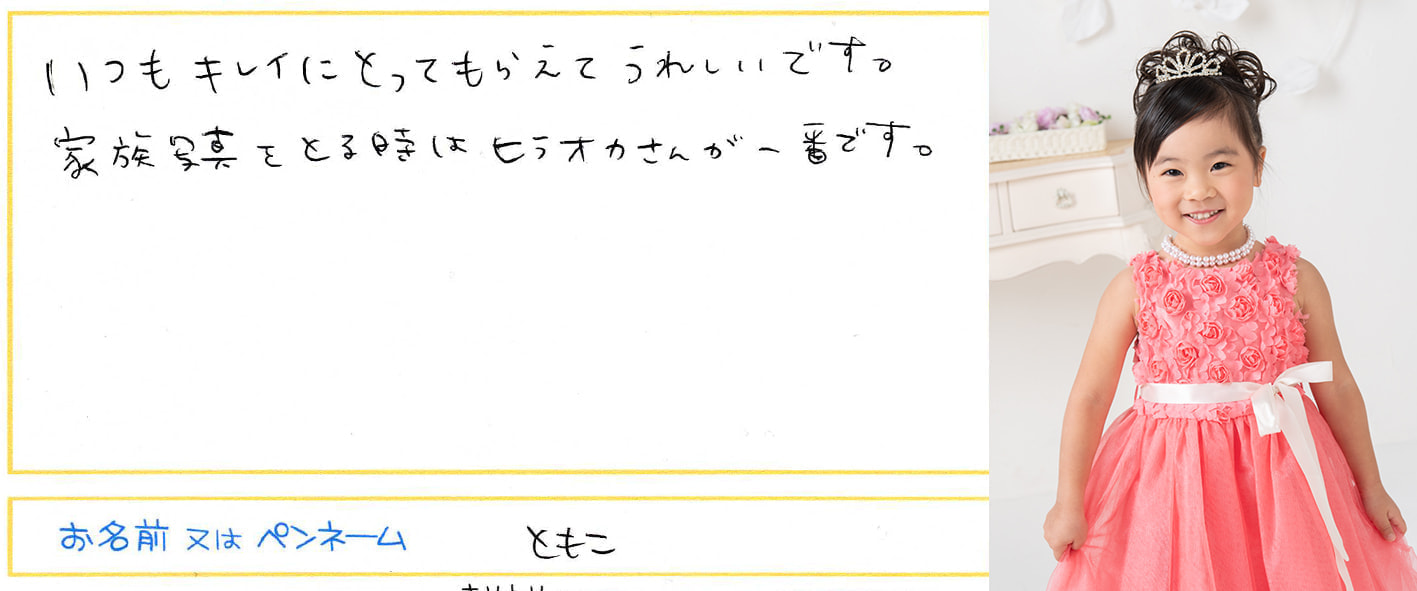 いつもキレイにとってもらえてうれしいです。
家族写真をとる時はヒラオカさんが一番です。
お名前 又は ペンネーム ともこ